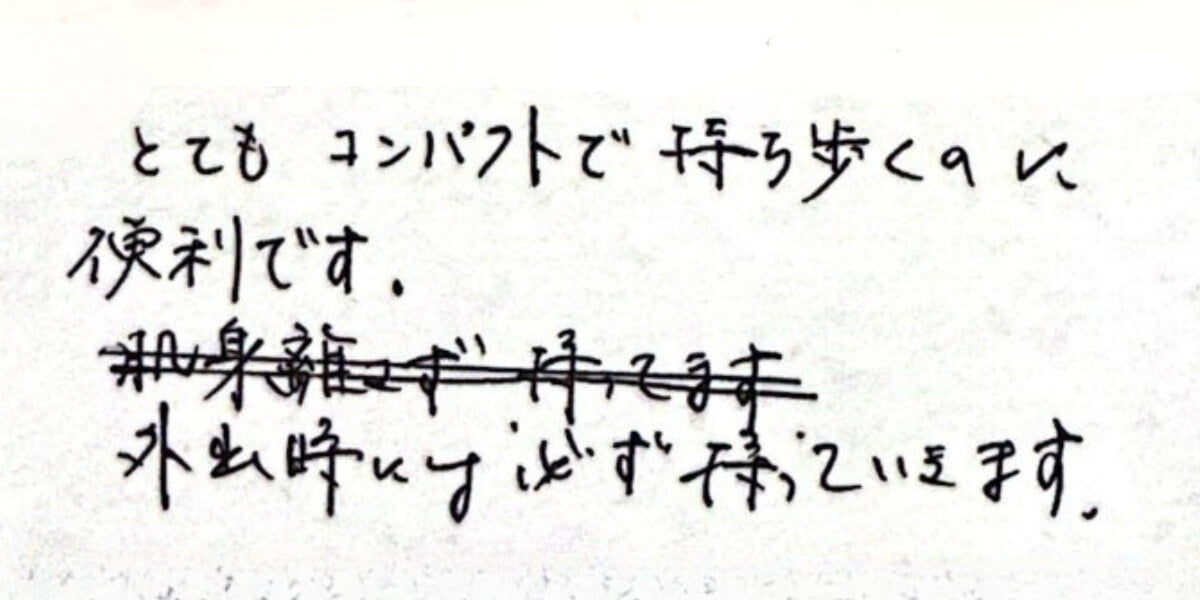 とても コンパクトで 持ち歩くのに
便利です.
肌身離さず 持ってます
外出時には 必ず 持っていきます.